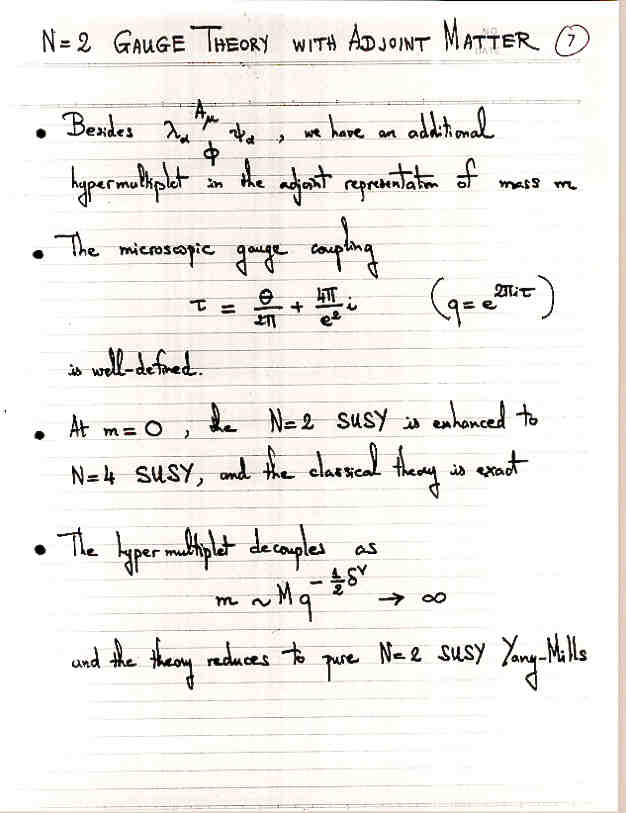 N=2 GAUGE THEORY WITH ADJOINT MATTER 7
• Besides λα Aμ ϕ ψα , we have an additional
hypermultiplet in the adjoint representation of mass m
• The microscopic gauge coupling
τ = θ/2π + 4π/e² i (q = e^{2πiτ})
is well-defined.
• At m=0 , the N=2 SUSY is enhanced to
N=4 SUSY, and the classical theory is exact
• The hypermultiplet decouples as
m ~ M q^{-½δ^v} → ∞
and the theory reduces to pure N=2 SUSY Yang-Mills